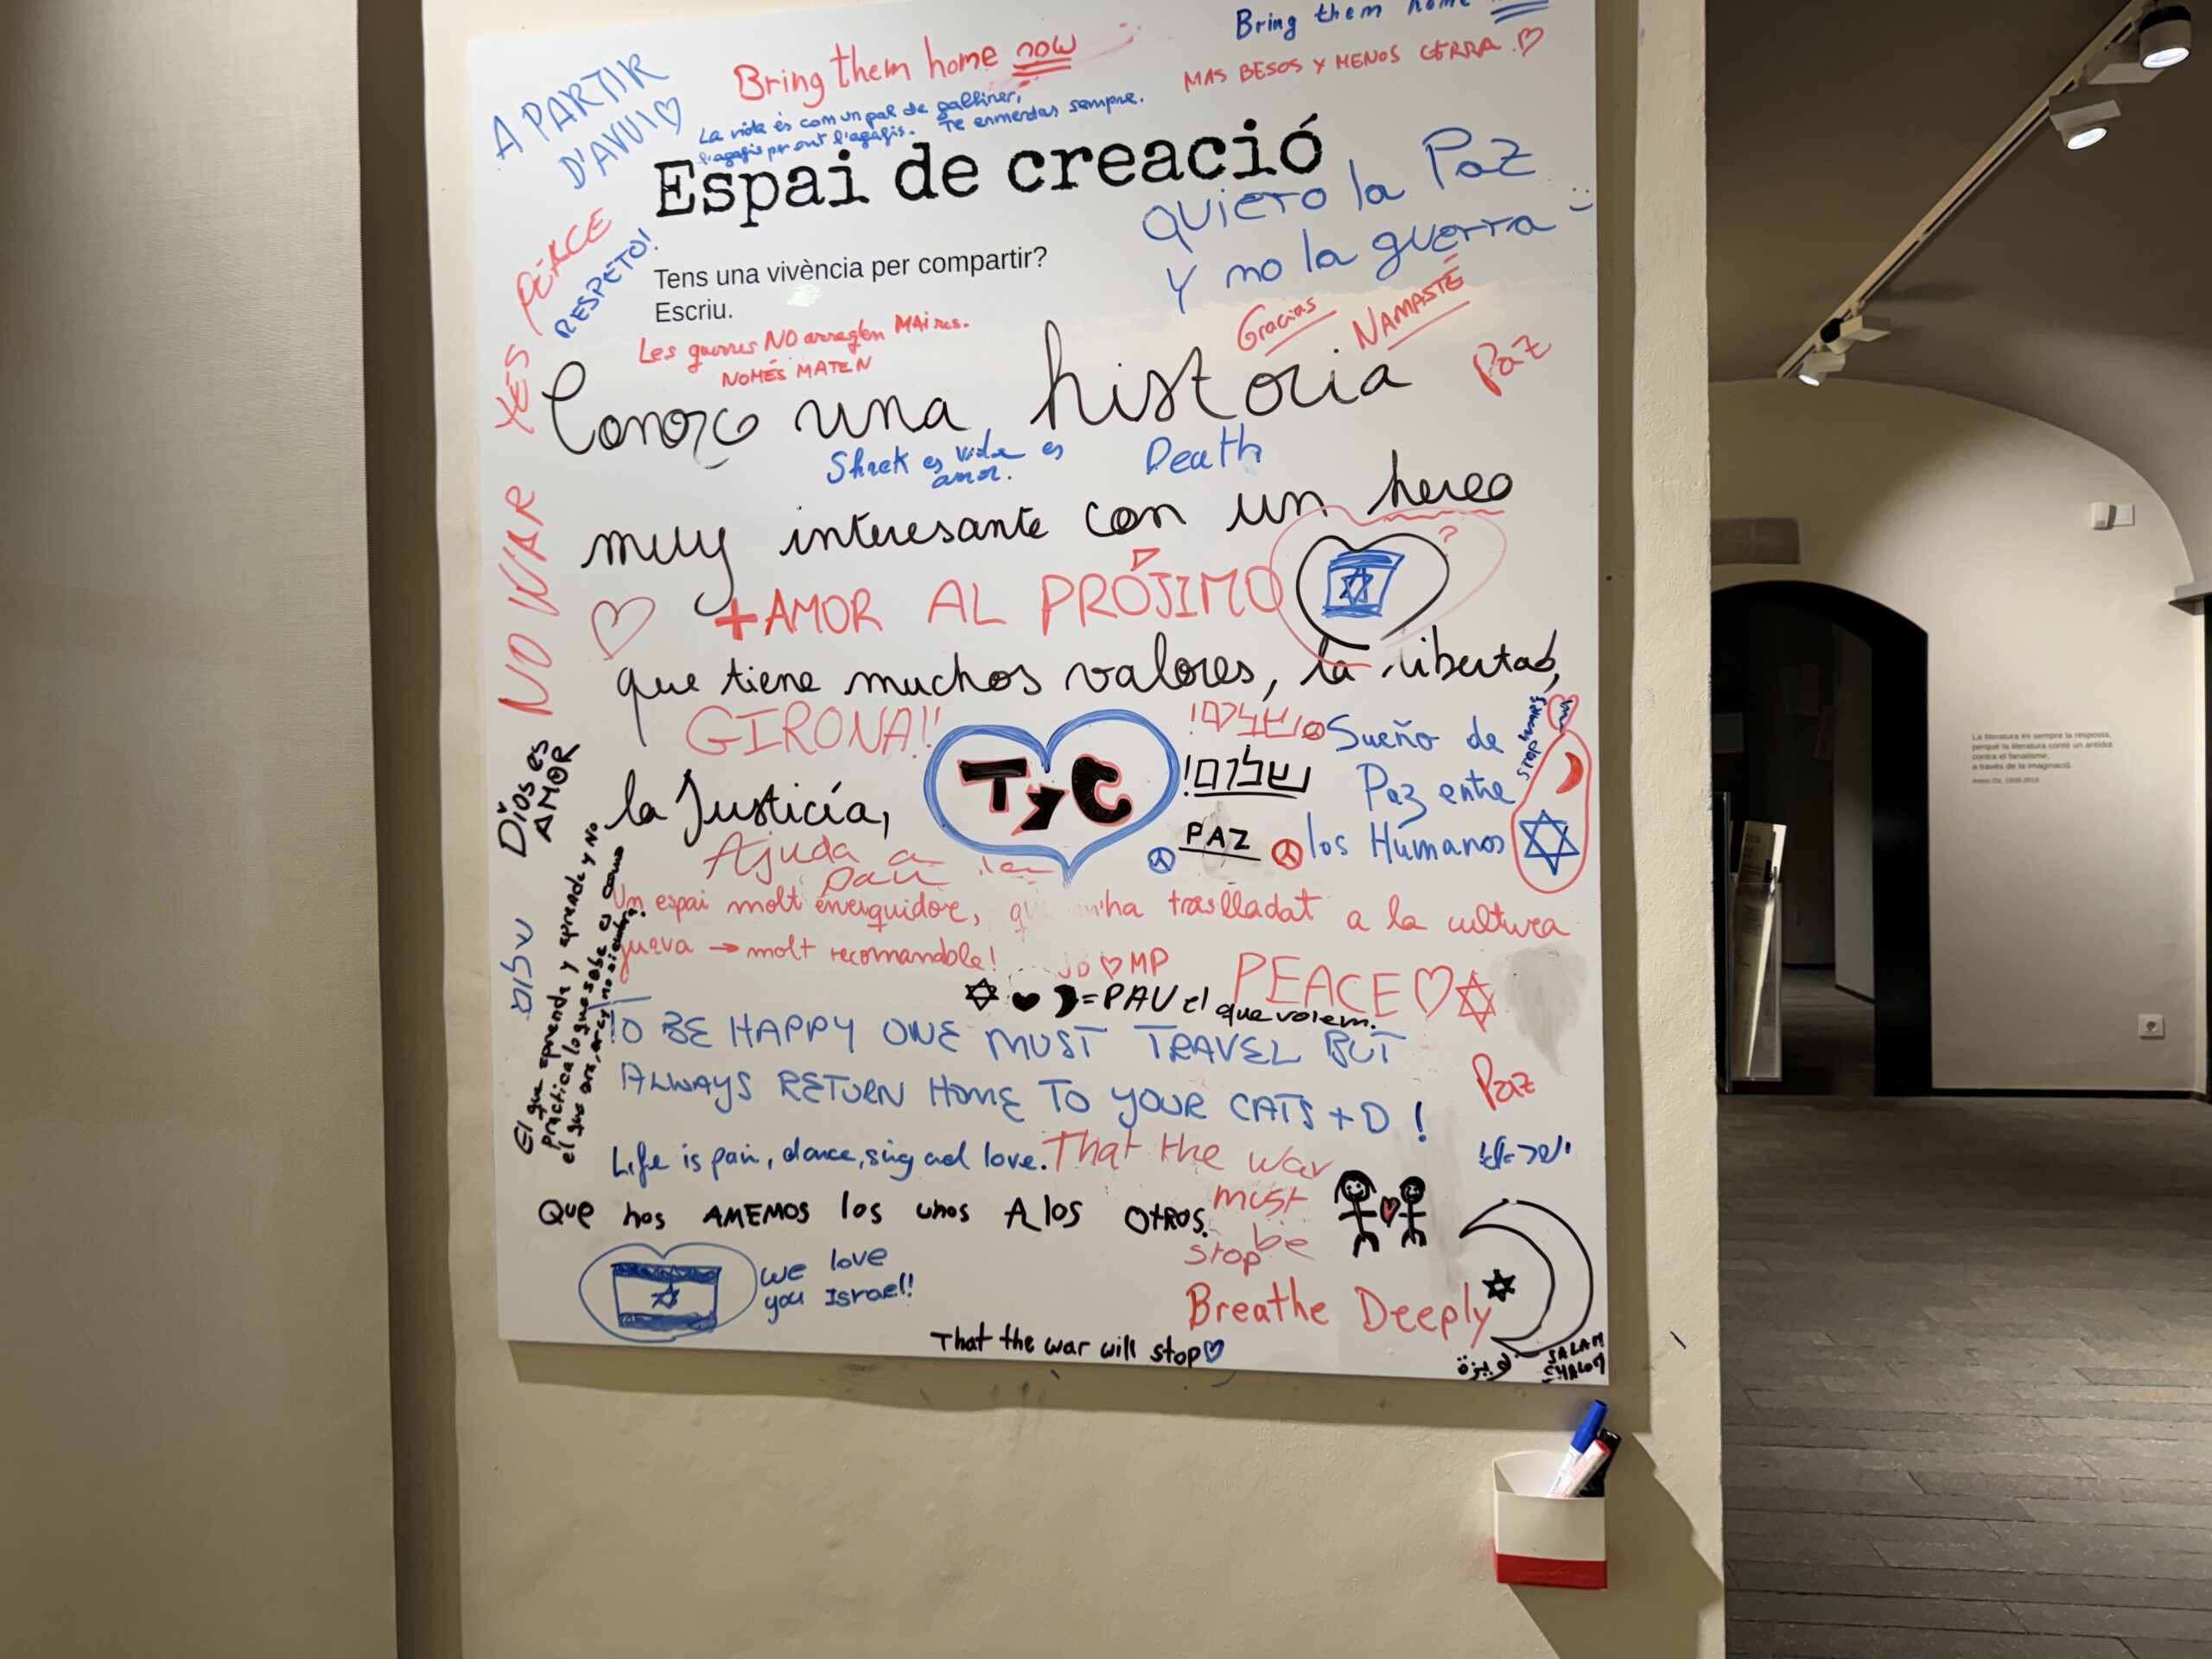 Bring them home
Bring them home now
MAS BESOS Y MENOS GERRA
A PARTIR
D'AVUI
La vida és com un pal de galliner,
l'agafis per ont l'agafis. Te enmerdas sempre.
Espai de creació
quiero la Paz
Y no la guerra
YES PEACE
RESPETO!
Tens una vivència per compartir?
Escriu.
Gracias
NAMASTÉ
Les guerres NO arreglen MAI res.
NOMÉS MATEN
Paz
Conozco una historia
Shrek es vida es
amor.
Death
muy interesante con un hereo
?
NO WAR
+AMOR AL PRÓJIMO
que tiene muchos valores, la libertad,
GIRONA!!
T y C
שלום!
שלום!
PAZ
Sueño de
Paz entre
los Humanos
Dios es
AMOR
la Justicía,
Ajuda a
Un espai molt enriquidor, que m'ha traslladat a la cultura
jueva → molt recomandable!
JB ♡ MP
PEACE
= PAU el que volem.
El que aprende y aprende y no
practica lo que sabe es como
el que ara, ara y no siembra.
TO BE HAPPY ONE MUST TRAVEL BUT
ALWAYS RETURN HOME TO YOUR CATS + D!
Paz
Life is pain, dance, sing and love.
That the war
must
be
stop
Que nos AMEMOS los unos A los OTROS.
we love
you Israel!
Breathe Deeply
That the war will stop
SALAM
SHALOM
La literatura és sempre la resposta,
perquè la literatura conté un antídot
contra el fanatisme,
a través de la imaginació.
Amos Oz, 1939-2018